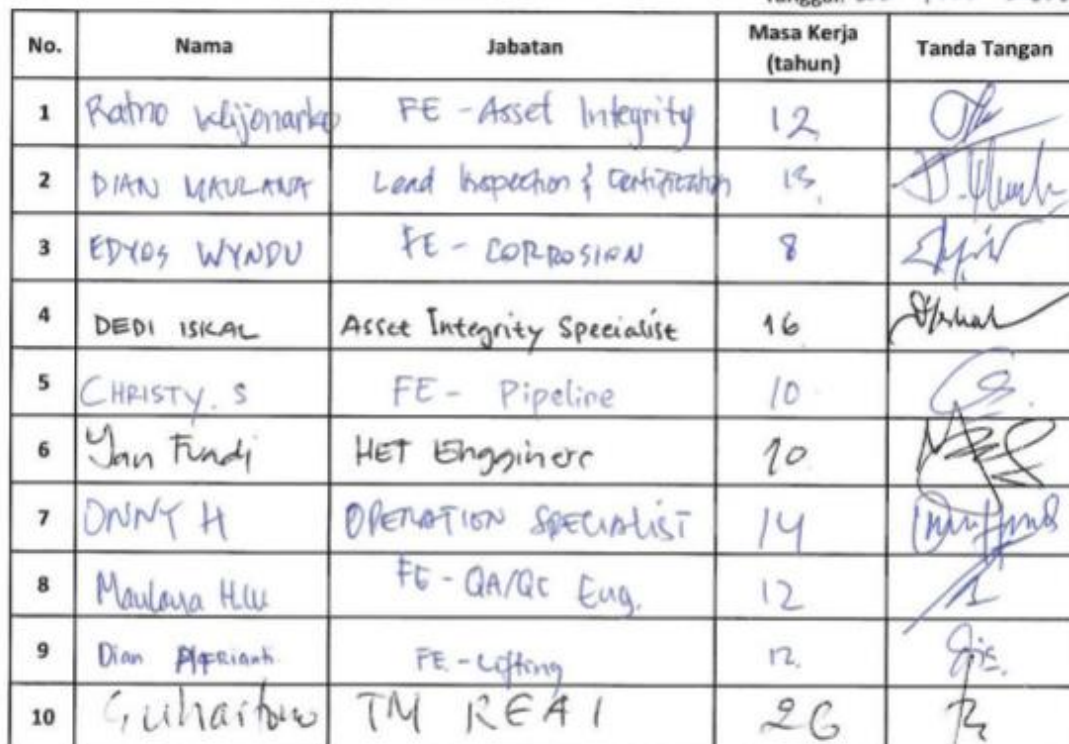 No. Nama Jabatan Masa Kerja (tahun) Tanda Tangan
1 Ratno FE - Asset Integrity 12
2 DIAN MAULANA Lead Inspection & Certification
3 EDYOS WYNDU FE - CORROSION 8
4 DEDI ISKAL Asset Integrity Specialist 16
5 CHRISTY. S FE - Pipeline 10
6 Yan Fundi HET 10
7 ONNY H OPERATION SPECIALIST 14
8 Maulana FE - QA/QC Eng. 12
9 Dian FE - Lifting 12
10 TM REAI 26